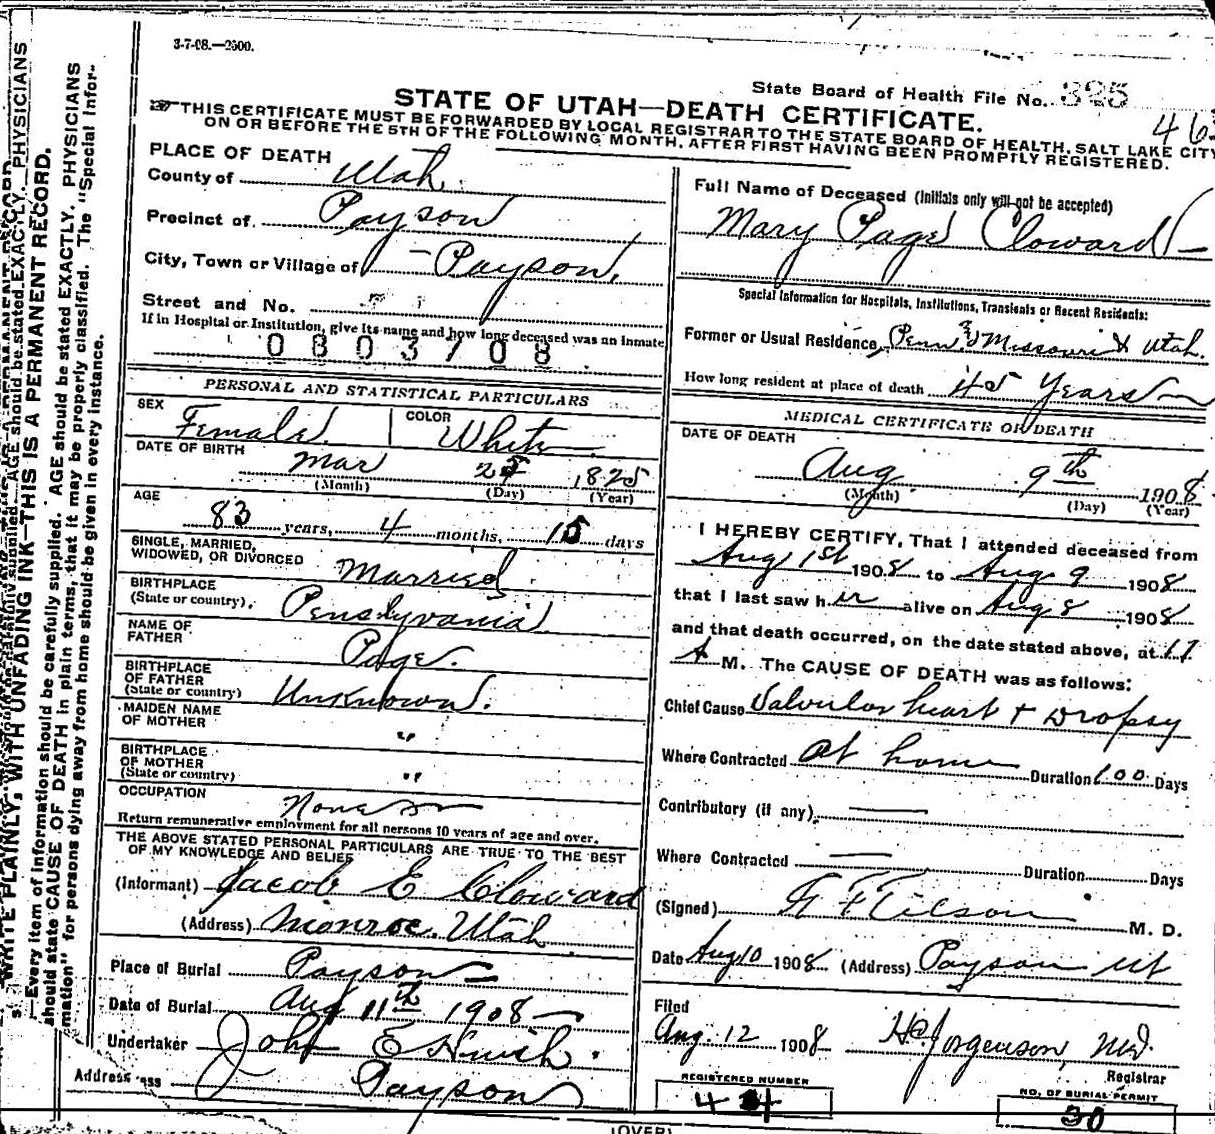 3-7-08.—2500.
State Board of Health File No. 325
463
STATE OF UTAH—DEATH CERTIFICATE.
THIS CERTIFICATE MUST BE FORWARDED BY LOCAL REGISTRAR TO THE STATE BOARD OF HEALTH, SALT LAKE CITY
ON OR BEFORE THE 5TH OF THE FOLLOWING MONTH, AFTER FIRST HAVING BEEN PROMPTLY REGISTERED.
WRITE PLAINLY, WITH UNFADING INK—THIS IS A PERMANENT RECORD.
Every item of information should be carefully supplied. AGE should be stated EXACTLY. PHYSICIANS
should state CAUSE OF DEATH in plain terms, that it may be properly classified. The "Special Infor-
mation" for persons dying away from home should be given in every instance.
PLACE OF DEATH
County of Utah
Precinct of Payson
City, Town or Village of Payson,
Street and No.
If in Hospital or Institution, give its name and how long deceased was an inmate
0803708
PERSONAL AND STATISTICAL PARTICULARS
SEX Female COLOR White
DATE OF BIRTH Mar 25 1825
(Month) (Day) (Year)
AGE
83 years, 4 months, 15 days
SINGLE, MARRIED,
WIDOWED, OR DIVORCED Married
BIRTHPLACE
(State or country) Penslyvania
NAME OF
FATHER Page.
BIRTHPLACE
OF FATHER
(State or country) Unknown.
MAIDEN NAME
OF MOTHER "
BIRTHPLACE
OF MOTHER
(State or country) "
OCCUPATION None
Return remunerative employment for all persons 10 years of age and over.
THE ABOVE STATED PERSONAL PARTICULARS ARE TRUE TO THE BEST
OF MY KNOWLEDGE AND BELIEF
(Informant) Jacob E Cloward
(Address) Monroe. Utah
Place of Burial Payson
Date of Burial Aug 11th 1908
Undertaker John E Huish.
Address Payson
Full Name of Deceased (Initials only will not be accepted)
Mary Page Cloward
Special Information for Hospitals, Institutions, Transients or Recent Residents:
Former or Usual Residence, Penn. & Missouri & Utah.
How long resident at place of death 45 Years
MEDICAL CERTIFICATE OF DEATH
DATE OF DEATH
Aug 9th 1908
(Month) (Day) (Year)
I HEREBY CERTIFY, That I attended deceased from
Aug 1st 1908 to Aug 9 1908
that I last saw her alive on Aug 8 1908
and that death occurred, on the date stated above, at 11
A M. The CAUSE OF DEATH was as follows:
Chief Cause Valvular heart + Dropsy
Where Contracted at home Duration 100 Days
Contributory (if any)
Where Contracted Duration Days
(Signed) Tilson M. D.
Date Aug 10 1908 (Address) Payson Ut
Filed
Aug. 12 1908 Jorgenson, M.D.
Registrar
REGISTERED NUMBER
NO. OF BURIAL PERMIT
30
(OVER)